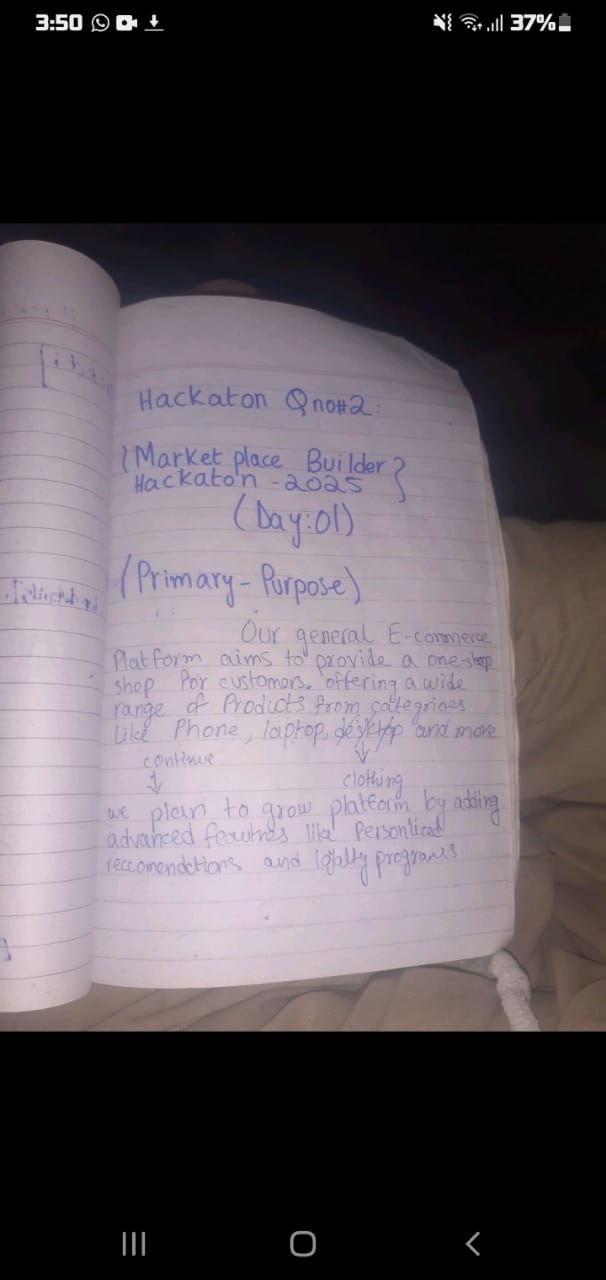 3:50
37%
Hackaton Qno#2:
{Market place Builder
Hackaton -2025}
(Day:01)
(Primary-Purpose)
Our general E-commerce
Platform aims to provide a one-stop
shop For customers. offering a wide
range of Products from categrioes
Like Phone, laptop, desktop and more
continue
clothing
we plan to grow platform by adding
advanced like Personlized
reccomendctions and loyalty programs